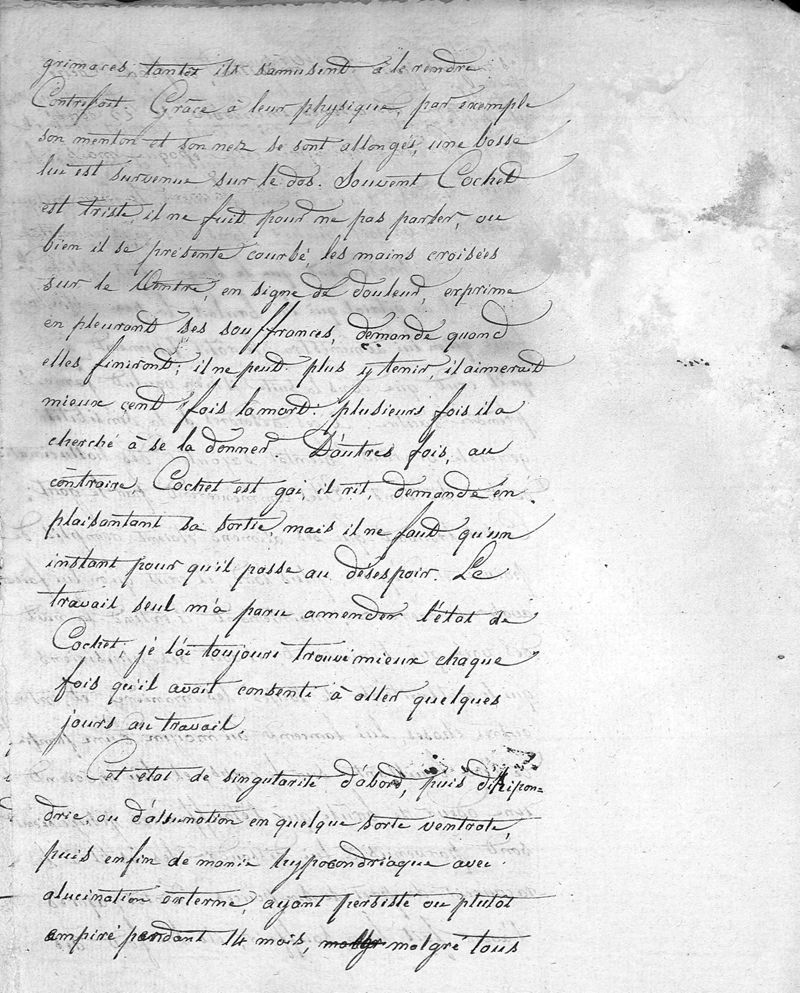 grimaces, tantôt ils s'amusent à le rendre
Contrefait. Grâce à leur physique, par exemple
son menton et son nez se sont allongés, une bosse
lui est survenue sur le dos. Souvent Cochet
est triste, il ne fuit pour ne pas parler, ou
bien il se présente courbé, les mains croisées
sur le Ventre, en signe de douleur, exprime
en pleurant ses souffrances, demande quand
elles finiront; il ne peut plus y tenir, il aimerait
mieux cent fois la mort: plusieurs fois il a
cherché à se la donner. D'autres fois, au
contraire Cochet est gai, il rit, demande en
plaisantant sa sortie, mais il ne faut qu'un
instant pour qu'il passe au désespoir. Le
travail seul m'a paru amender l'état de
Cochet, je l'ai toujours trouvé mieux chaque
fois qu'il avait consenti à aller quelques
jours au travail.
Cet état de singularité d'abord, puis d'hipon=
drie, ou d'alsunation en quelque sorte ventrale,
puis enfin de manie hypocondriaque avec
alucination externe, ayant persisté ou plutôt
empiré pendant 14 mois, malgré tous